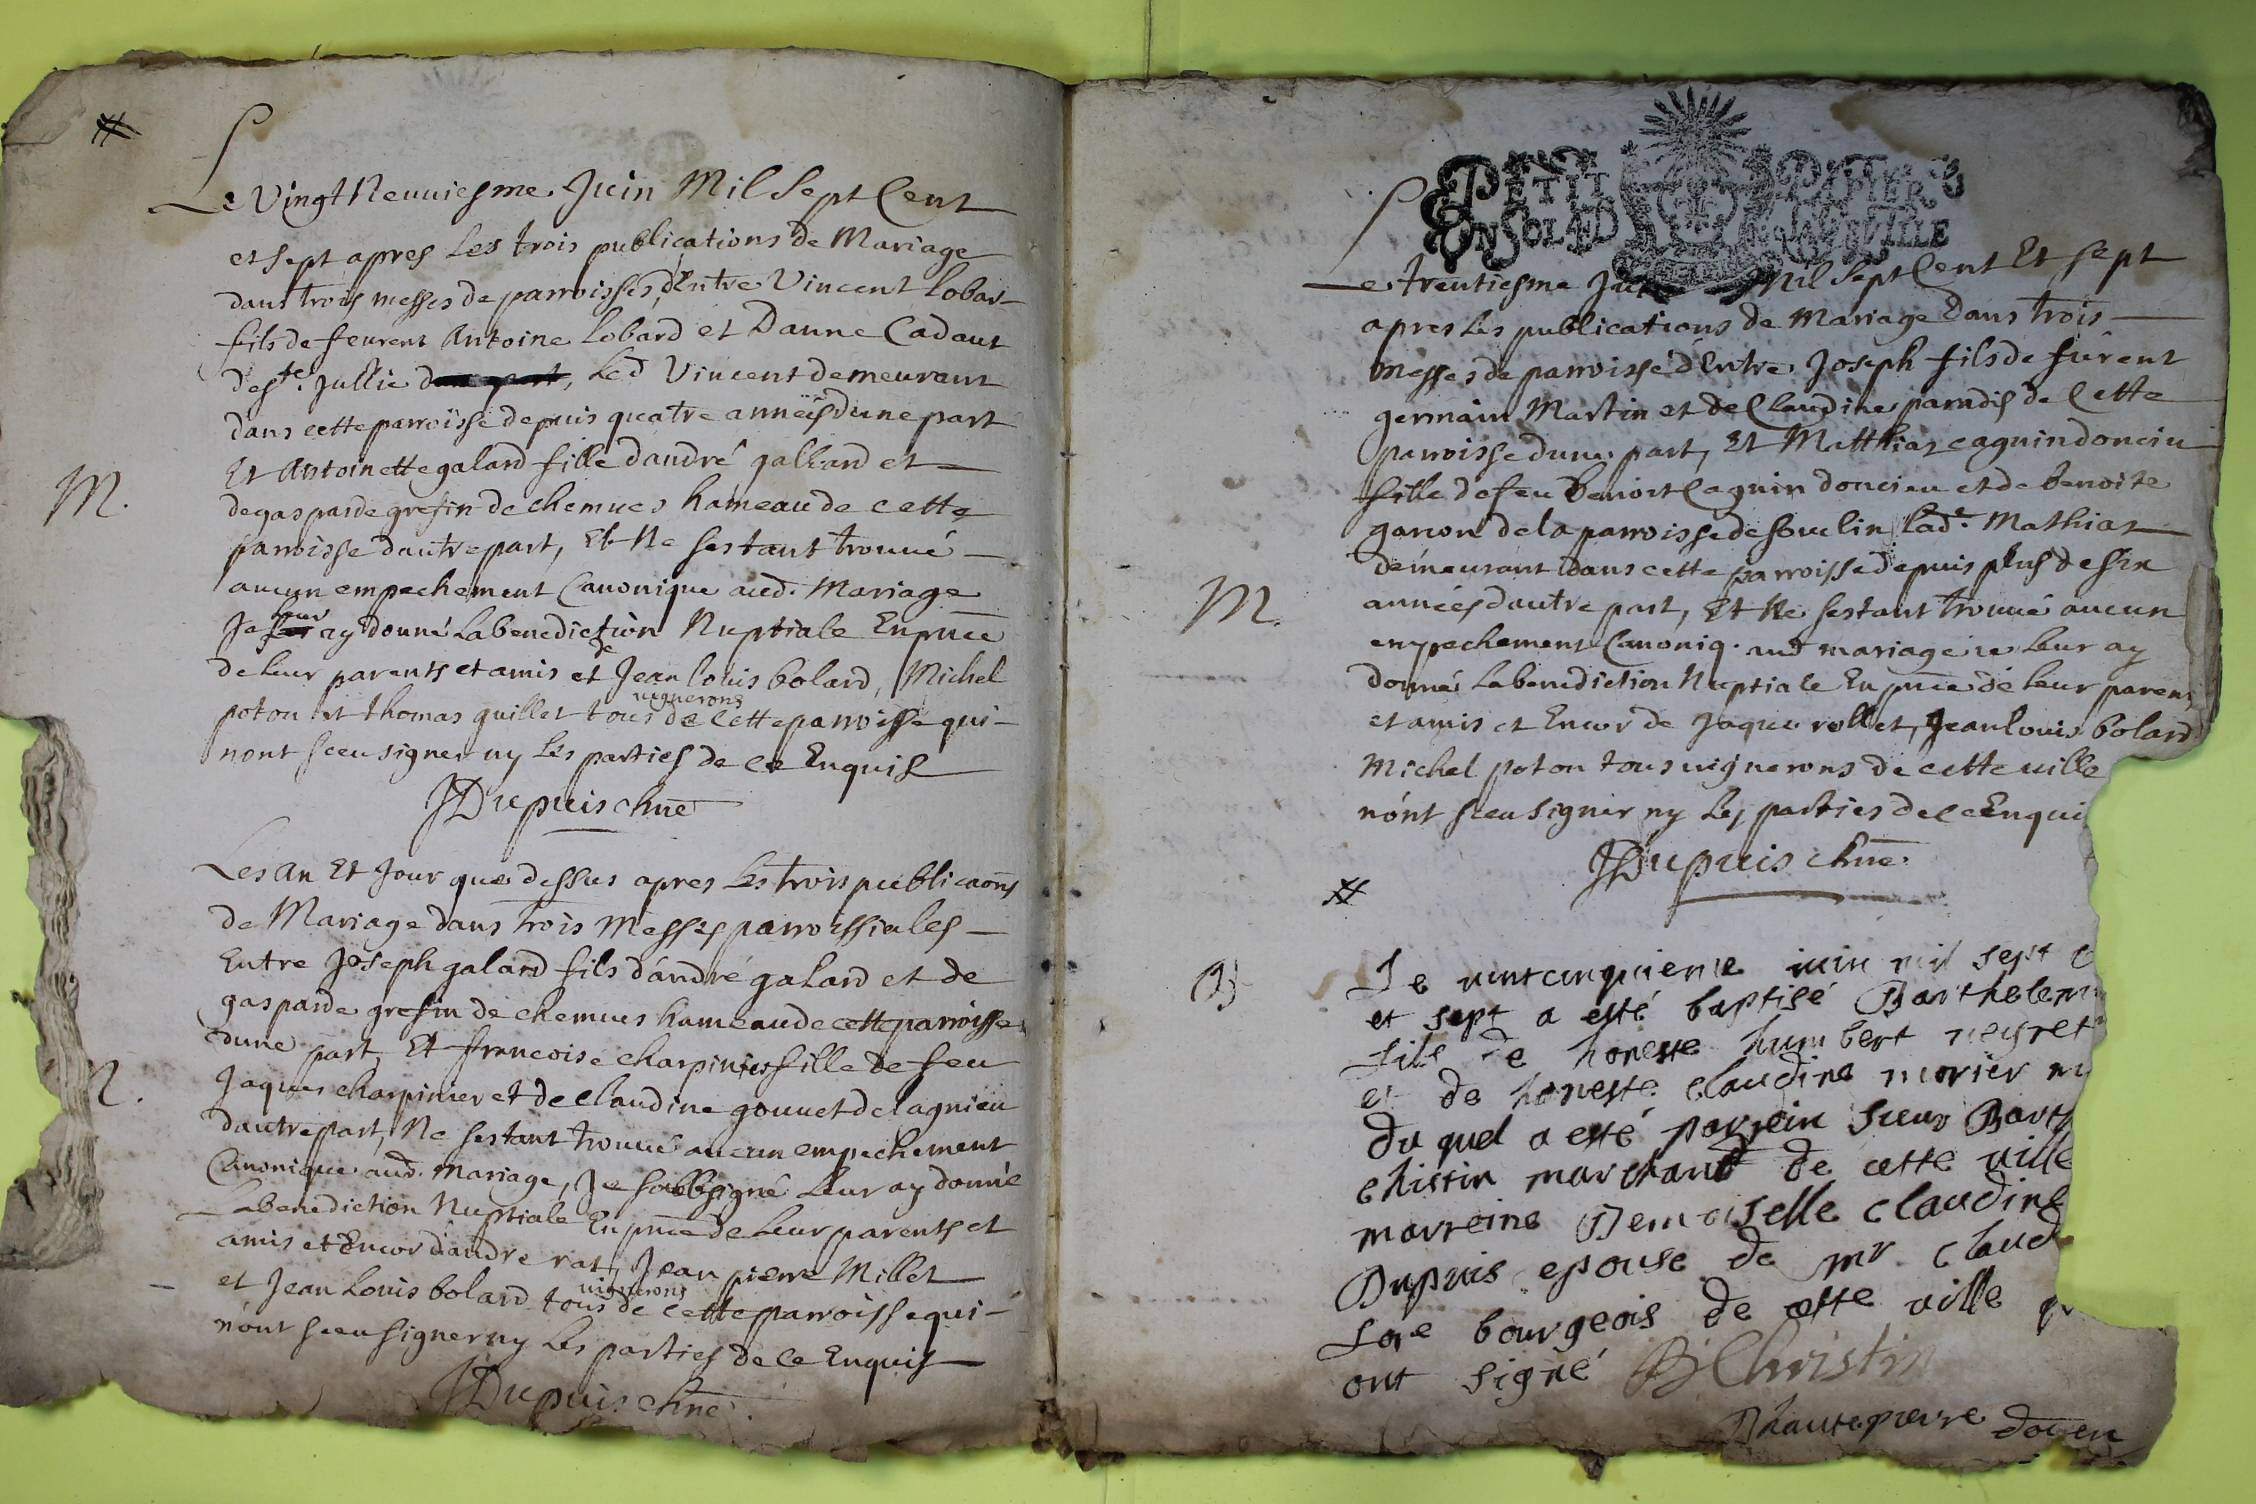 #
Le Vingt Neuuiesme Juin Mil Sept Cent
et sept apres Les trois publications de Mariage
dans trois messes de parroisses, d'Entre Vincent Lobar-
fils de feurent Antoine Lobard et Danne Cadaut
de ste. Jullie, Led Vincent demeurant
dans cette parroisse depuis quatre années dune part
M.
Et Antoinette galard fille dandré galland et
de gasparde grefin de chemues hameau de cette
parroisse dautre part, Et Ne sestant trouué
aucun empechement Canonique aud. Mariage
Je leur ay donné La benediction Nuptiale En pnce
de leur parents et amis et de Jean louis bolard, Michel
poton et thomas guillet tous vignerons de Cette parroisse qui
nont sceu signer ny Les parties de ce Enquis
JDupuis chne
Les An Et Jour que dessus apres Les trois publicaons
de Mariage dans trois Messes parroissiales
Entre Joseph galard fils d'andré galard et de
gasparde grefin de chemues hameau de cette parroisse
dune part, Et francoise charpinier fille de feu
Jaques charpinier et de Claudine gouuet de lagnieu
dautre part, Ne sestant trouué aucun empechement
Canonique aud. Mariage, Je soubsigné Leur ay donné
La benediction Nuptiale En pnce de Leur parents et
amis et Encor dandre rat, Jean pierre Millet
et Jean Louis bolard tous vignerons de cette parroisse qui
n'ont sceu signer ny Les parties de Ce Enquis
JDupuis chne.
PETIT PAPIER
UN SOL LA FEUILLE
Le trentiesme Mil Sept Cent Et sept
apres Les publications de Mariage Dans trois
messes de parroisse d'Entre Joseph fils de furent
germain Martin et de Claudine paradis de Cette
parroisse dune part, Et Matthias caguin doncieu
fille de feu Benoist Caguin doncieu et de benoite
garion de la parroisse de souclin Lade. Mathias
M.
demeurant dans cette parroisse depuis plus de six
années dautre part, Et Ne sestant trouué aucun
empechement Canoniq. aud mariage ie Leur ay
donné La benediction Nuptiale En pnce de Leur paren
et amis et Encor de Jaque rollet, Jean louis bolard
Michel poton tous vignerons de cette ville
n'ont sceu signer ny Les parties de ce Enqui
JDupuis chne.
#
B
Le vint cinquieme iuin mil sept c
et sept a esté baptisé Barthelem
fils de honeste humbert negret
et de honeste claudine morier
du quel a esté parrein sieur Bart
christin marchand de cette ville
marreine Demoiselle claudine
Dupuis epouse de mr claud
bourgeois de cette ville
ont signé B Christin
Dhautepierre doyen